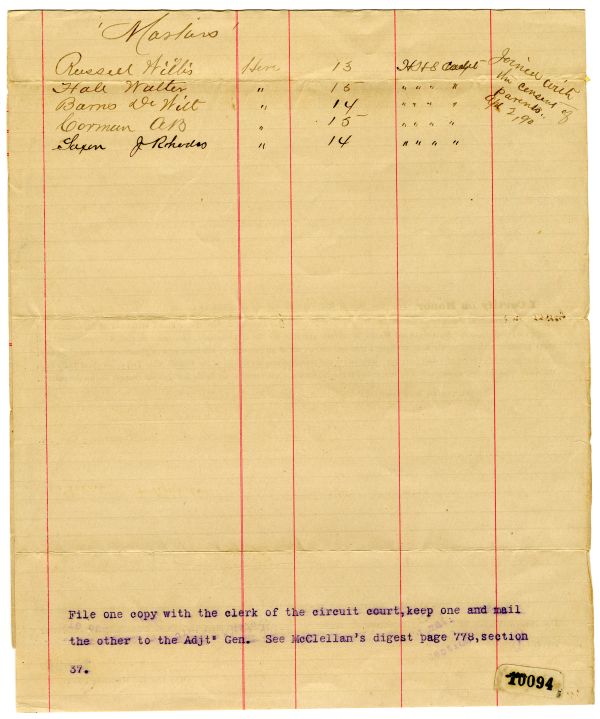 'Martins'
Russell Willis Here 13 H H E Capt
Hall Walter " 15 " " " "
Barns De Wilt " 14 " " " "
Corman A B " 15 " " " "
Saxon J Rhodes " 14 " " " "
Joined with
the consent of
parents.
2, 90
I Certify on Honor
File one copy with the clerk of the circuit court,keep one and mail
the other to the Adjt" Gen. See McClellan's digest page 778,section
37.
10094